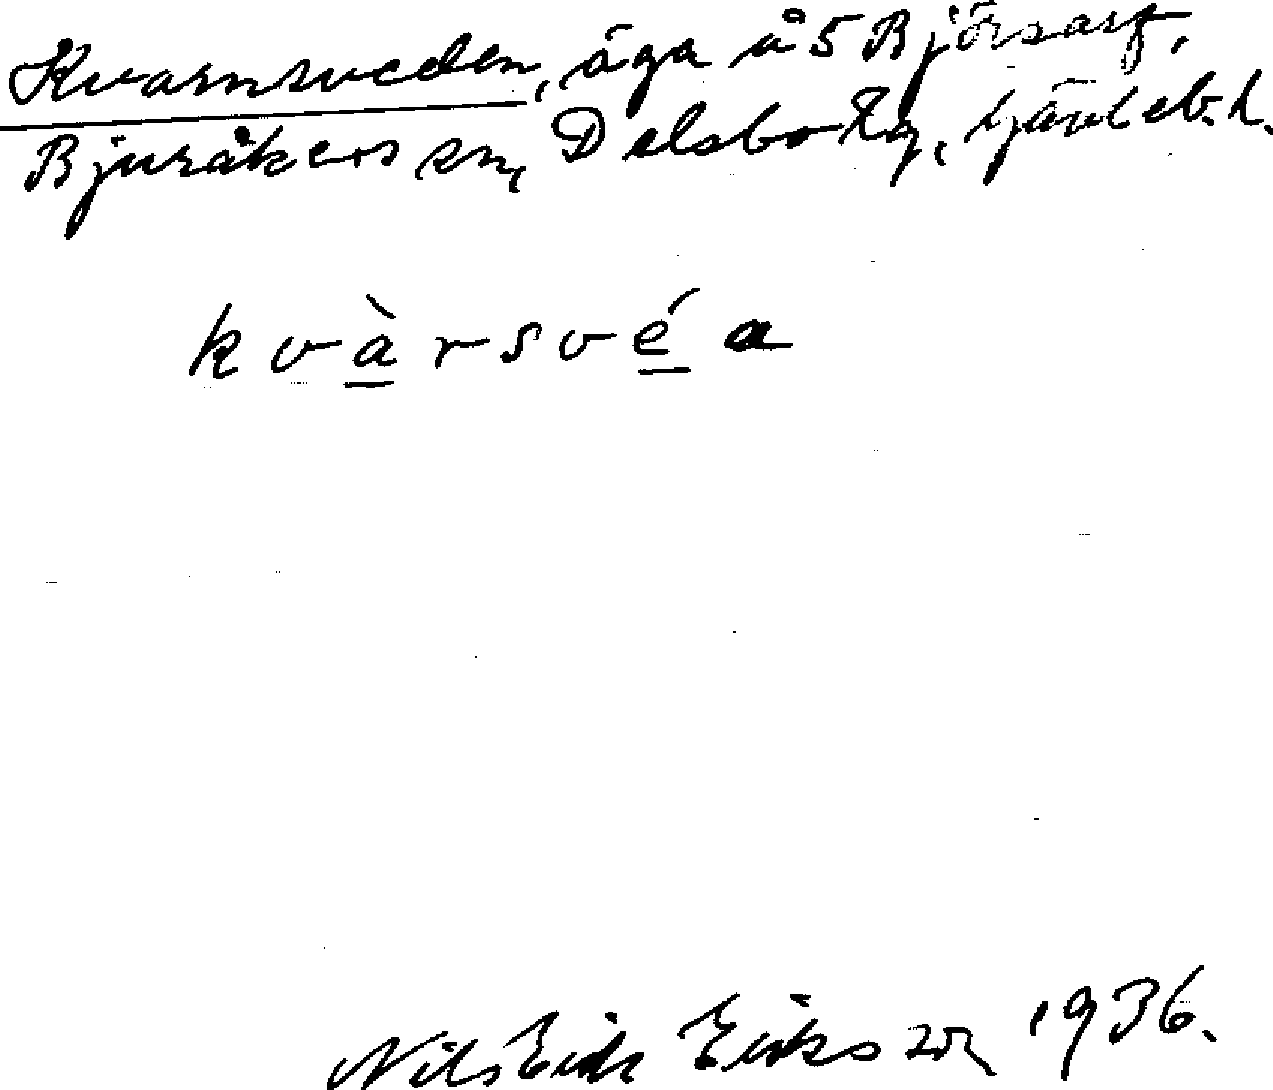 Kvarnsveden, äga å 5 Björsarf,
Bjuråkers sn, Delsbo tg, Gävleb. l.
kvàrsvéa
Nils Erik Eriksson 1936.